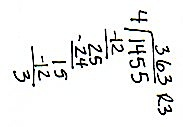 363 R3
4 1455
-12
25
-24
15
-12
3